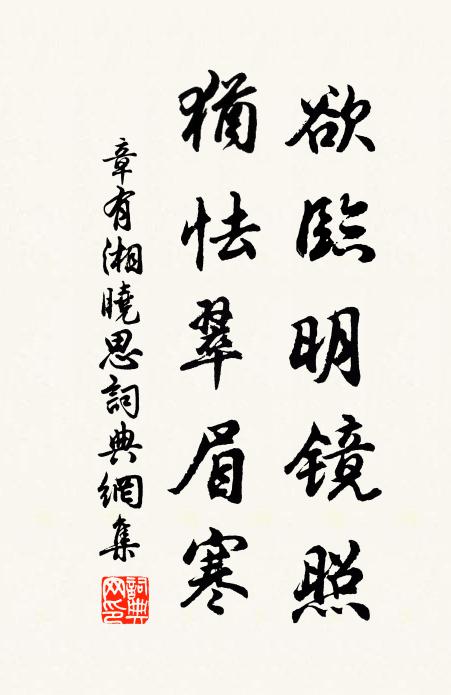 欲臨明鏡照
猶怯翠眉寒
章有湘曉思詞典網集
詞典網印